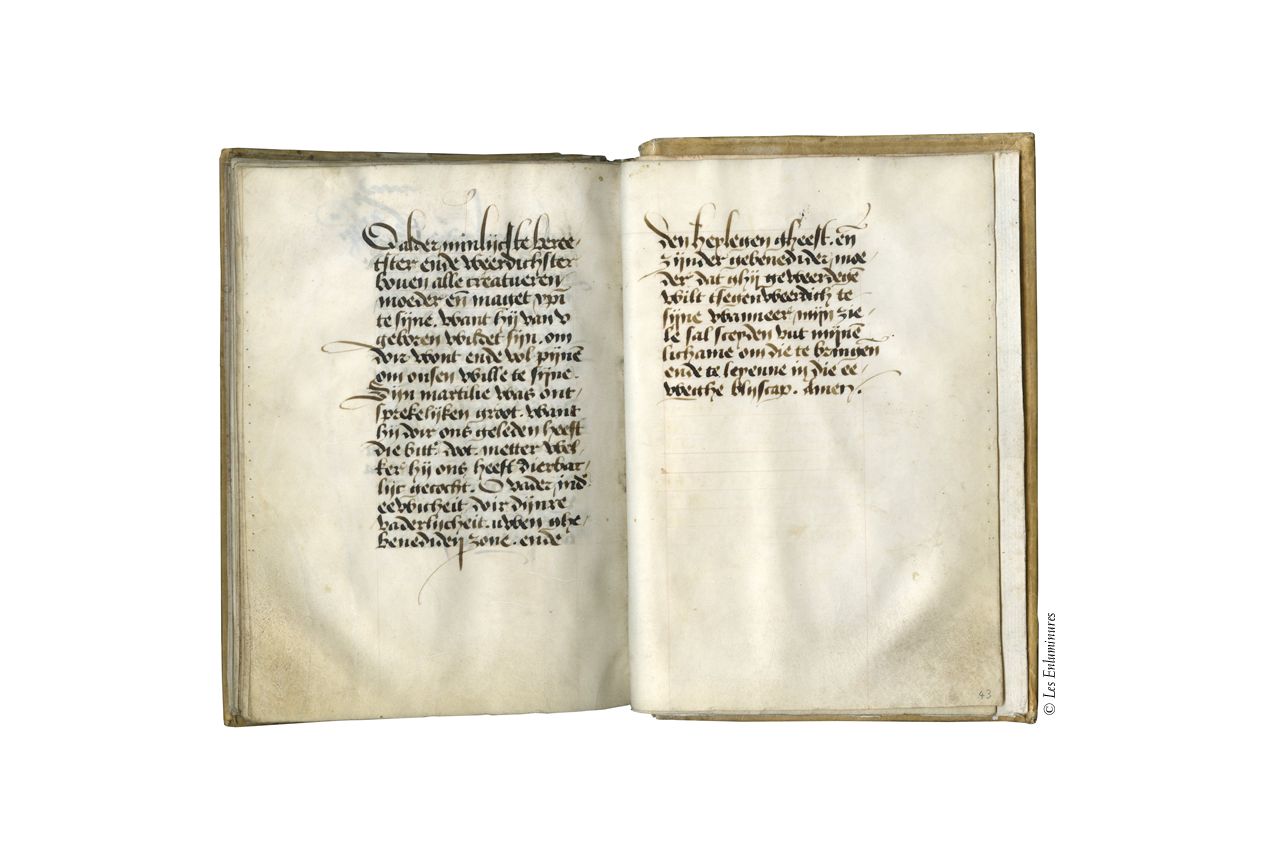 O alder minlijcste beree-
tster ende weerdichster
bouen alle creatueren
moeder en̄ maget xp̄i
te sijne. want hij van v
geboren wildet sijn. om
doir wont ende vol pijnē
om onsen wille te sijne
Sijn martilie was ont-
sprekelijken groot. want
hij doir ons geleden heeft
die bitt' doot. metter wel-
ker hij ons heeft dierbar-
lijc gecocht. O vader, ind'
eewicheit doir dijnre
vaderlijcheit. uwen ghe-
benediden zone. ende
den heylegen gheest. en̄
zijnder gebenedider moe-
der dat ghij geweerdegē
wilt tsegenweerdich te
sijne wanneer mijn zie-
le sal sceyden vut mijnē
lichame om die te bringen
ende te leyenne in die ee-
weghe blijscap. Amen.
43
© Les Enluminures